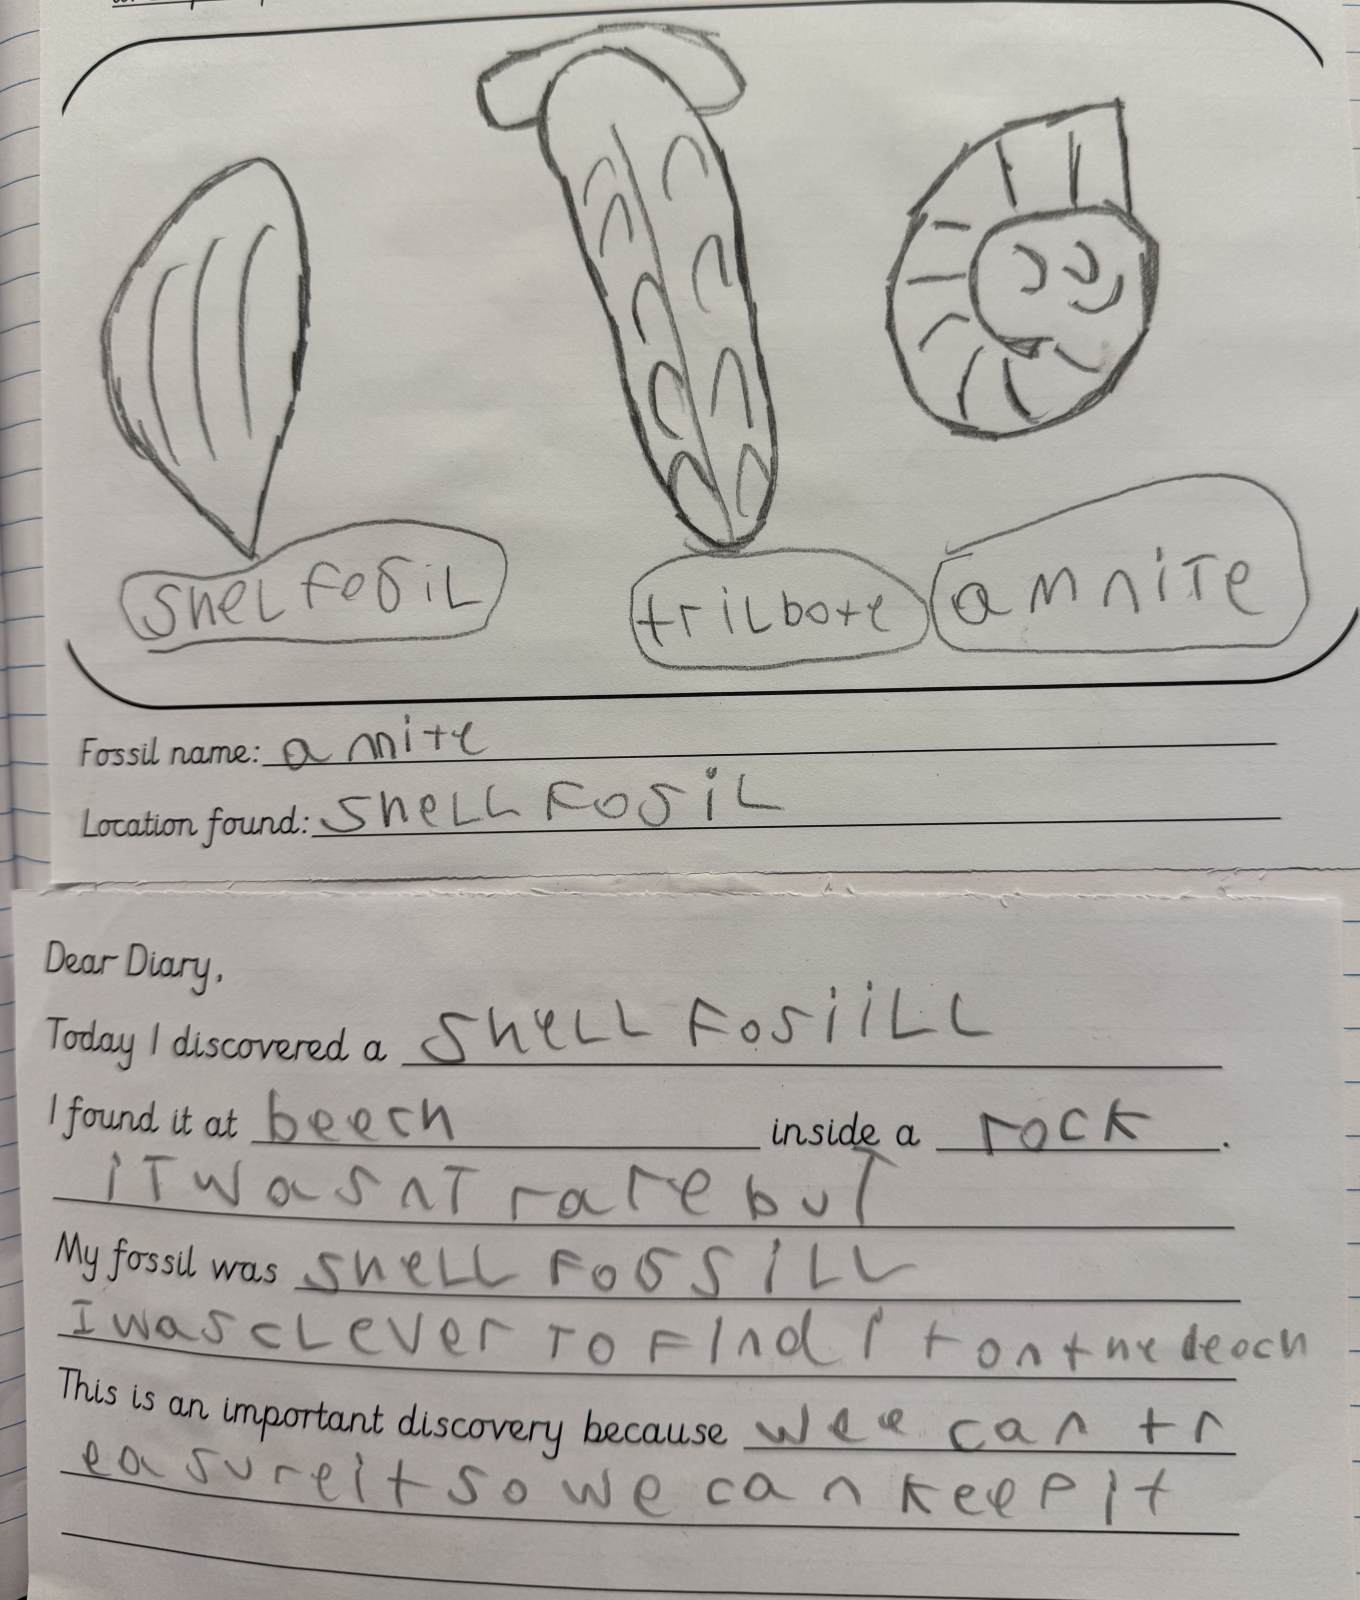 shel fosiL
triLbote
amniTe
Fossil name: amnite
Location found: sheLL FosiL
Dear Diary,
Today I discovered a sheLL FosiiLL
I found it at beech inside a rock.
iT wasnT rare buT
My fossil was sheLL FossiLL
I was cLever To Find it on the beach
This is an important discovery because wee can tr
easure it so we can keep it